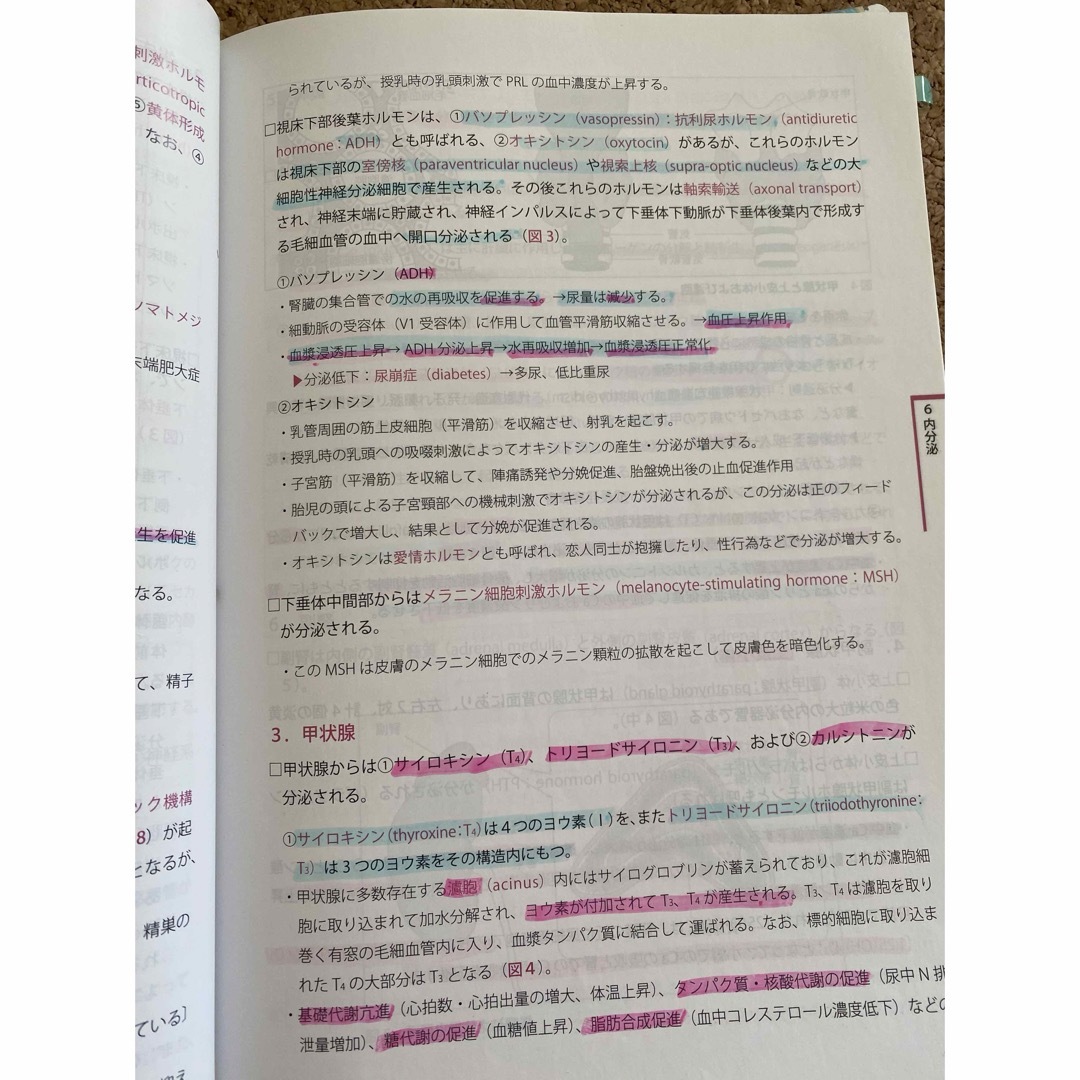 刺激ホルモ
rticotropic
⑤黄体形成
なお、④
ソマトメジ
末端肥大症
生を促進
なる。
て、精子
ック機構
8）が起
となるが、
精巣の
ている〕
られているが、授乳時の乳頭刺激で PRL の血中濃度が上昇する。
□視床下部後葉ホルモンは、①バソプレッシン（vasopressin）：抗利尿ホルモン（antidiuretic
hormone：ADH）とも呼ばれる、②オキシトシン（oxytocin）があるが、これらのホルモン
は視床下部の室傍核（paraventricular nucleus）や視索上核（supra-optic nucleus）などの大
細胞性神経分泌細胞で産生される。その後これらのホルモンは軸索輸送（axonal transport）
され、神経末端に貯蔵され、神経インパルスによって下垂体下動脈が下垂体後葉内で形成す
る毛細血管の血中へ開口分泌される（図 3）。
①バソプレッシン（ADH）
・腎臓の集合管での水の再吸収を促進する。→尿量は減少する。
・細動脈の受容体（V1 受容体）に作用して血管平滑筋収縮させる。→血圧上昇作用
・血漿浸透圧上昇→ ADH 分泌上昇→水再吸収増加→血漿浸透圧正常化
▶分泌低下：尿崩症（diabetes）→多尿、低比重尿
②オキシトシン
・乳管周囲の筋上皮細胞（平滑筋）を収縮させ、射乳を起こす。
・授乳時の乳頭への吸啜刺激によってオキシトシンの産生・分泌が増大する。
・子宮筋（平滑筋）を収縮して、陣痛誘発や分娩促進、胎盤娩出後の止血促進作用
・胎児の頭による子宮頸部への機械刺激でオキシトシンが分泌されるが、この分泌は正のフィード
バックで増大し、結果として分娩が促進される。
・オキシトシンは愛情ホルモンとも呼ばれ、恋人同士が抱擁したり、性行為などで分泌が増大する。
□下垂体中間部からはメラニン細胞刺激ホルモン（melanocyte-stimulating hormone：MSH）
が分泌される。
・この MSH は皮膚のメラニン細胞でのメラニン顆粒の拡散を起こして皮膚色を暗色化する。
3．甲状腺
□甲状腺からは①サイロキシン（T₄）、トリヨードサイロニン（T₃）、および②カルシトニンが
分泌される。
①サイロキシン（thyroxine：T₄）は 4 つのヨウ素（I）を、またトリヨードサイロニン（triiodothyronine：
T₃）は 3 つのヨウ素をその構造内にもつ。
・甲状腺に多数存在する濾胞（acinus）内にはサイログロブリンが蓄えられており、これが濾胞細
胞に取り込まれて加水分解され、ヨウ素が付加されて T₃、T₄ が産生される。T₃、T₄ は濾胞を取り
巻く有窓の毛細血管内に入り、血漿タンパク質に結合して運ばれる。なお、標的細胞に取り込ま
れた T₄ の大部分は T₃ となる（図 4）。
・基礎代謝亢進（心拍数・心拍出量の増大、体温上昇）、タンパク質・核酸代謝の促進（尿中 N 排
泄量増加）、糖代謝の促進（血糖値上昇）、脂肪合成促進（血中コレステロール濃度低下）などの
6 内分泌